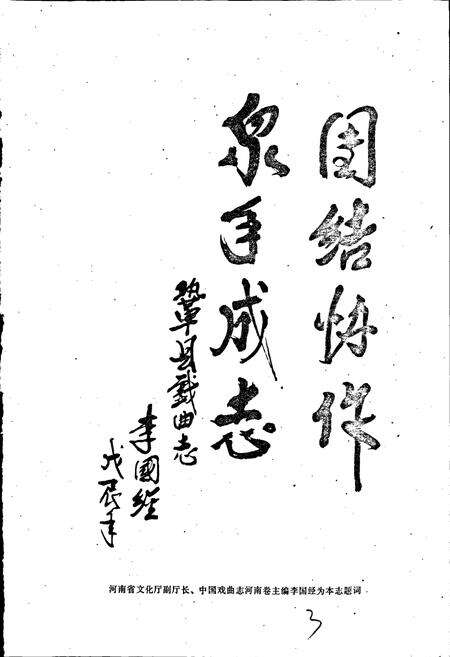 团结协作
众手成志
巩县戏曲志
李国经
戊辰年
河南省文化厅副厅长、中国戏曲志河南卷主编李国经为本志题词
3